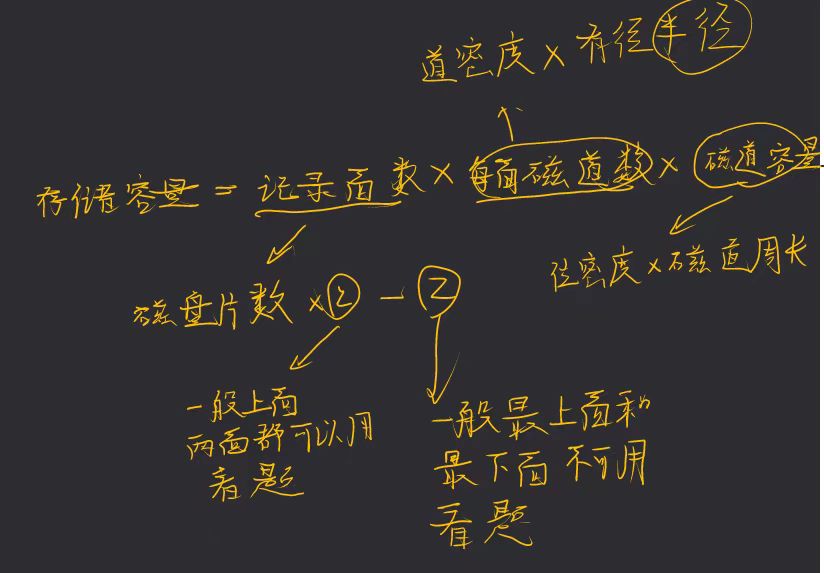 道密度 × 有径半径
存储容量 = 记录面数 × 每面磁道数 × 磁道容量
位密度 × 磁道周长
磁盘片数 × 2 - 2
一般上面
两面都可以用
看题
一般最上面和
最下面 不可用
看题